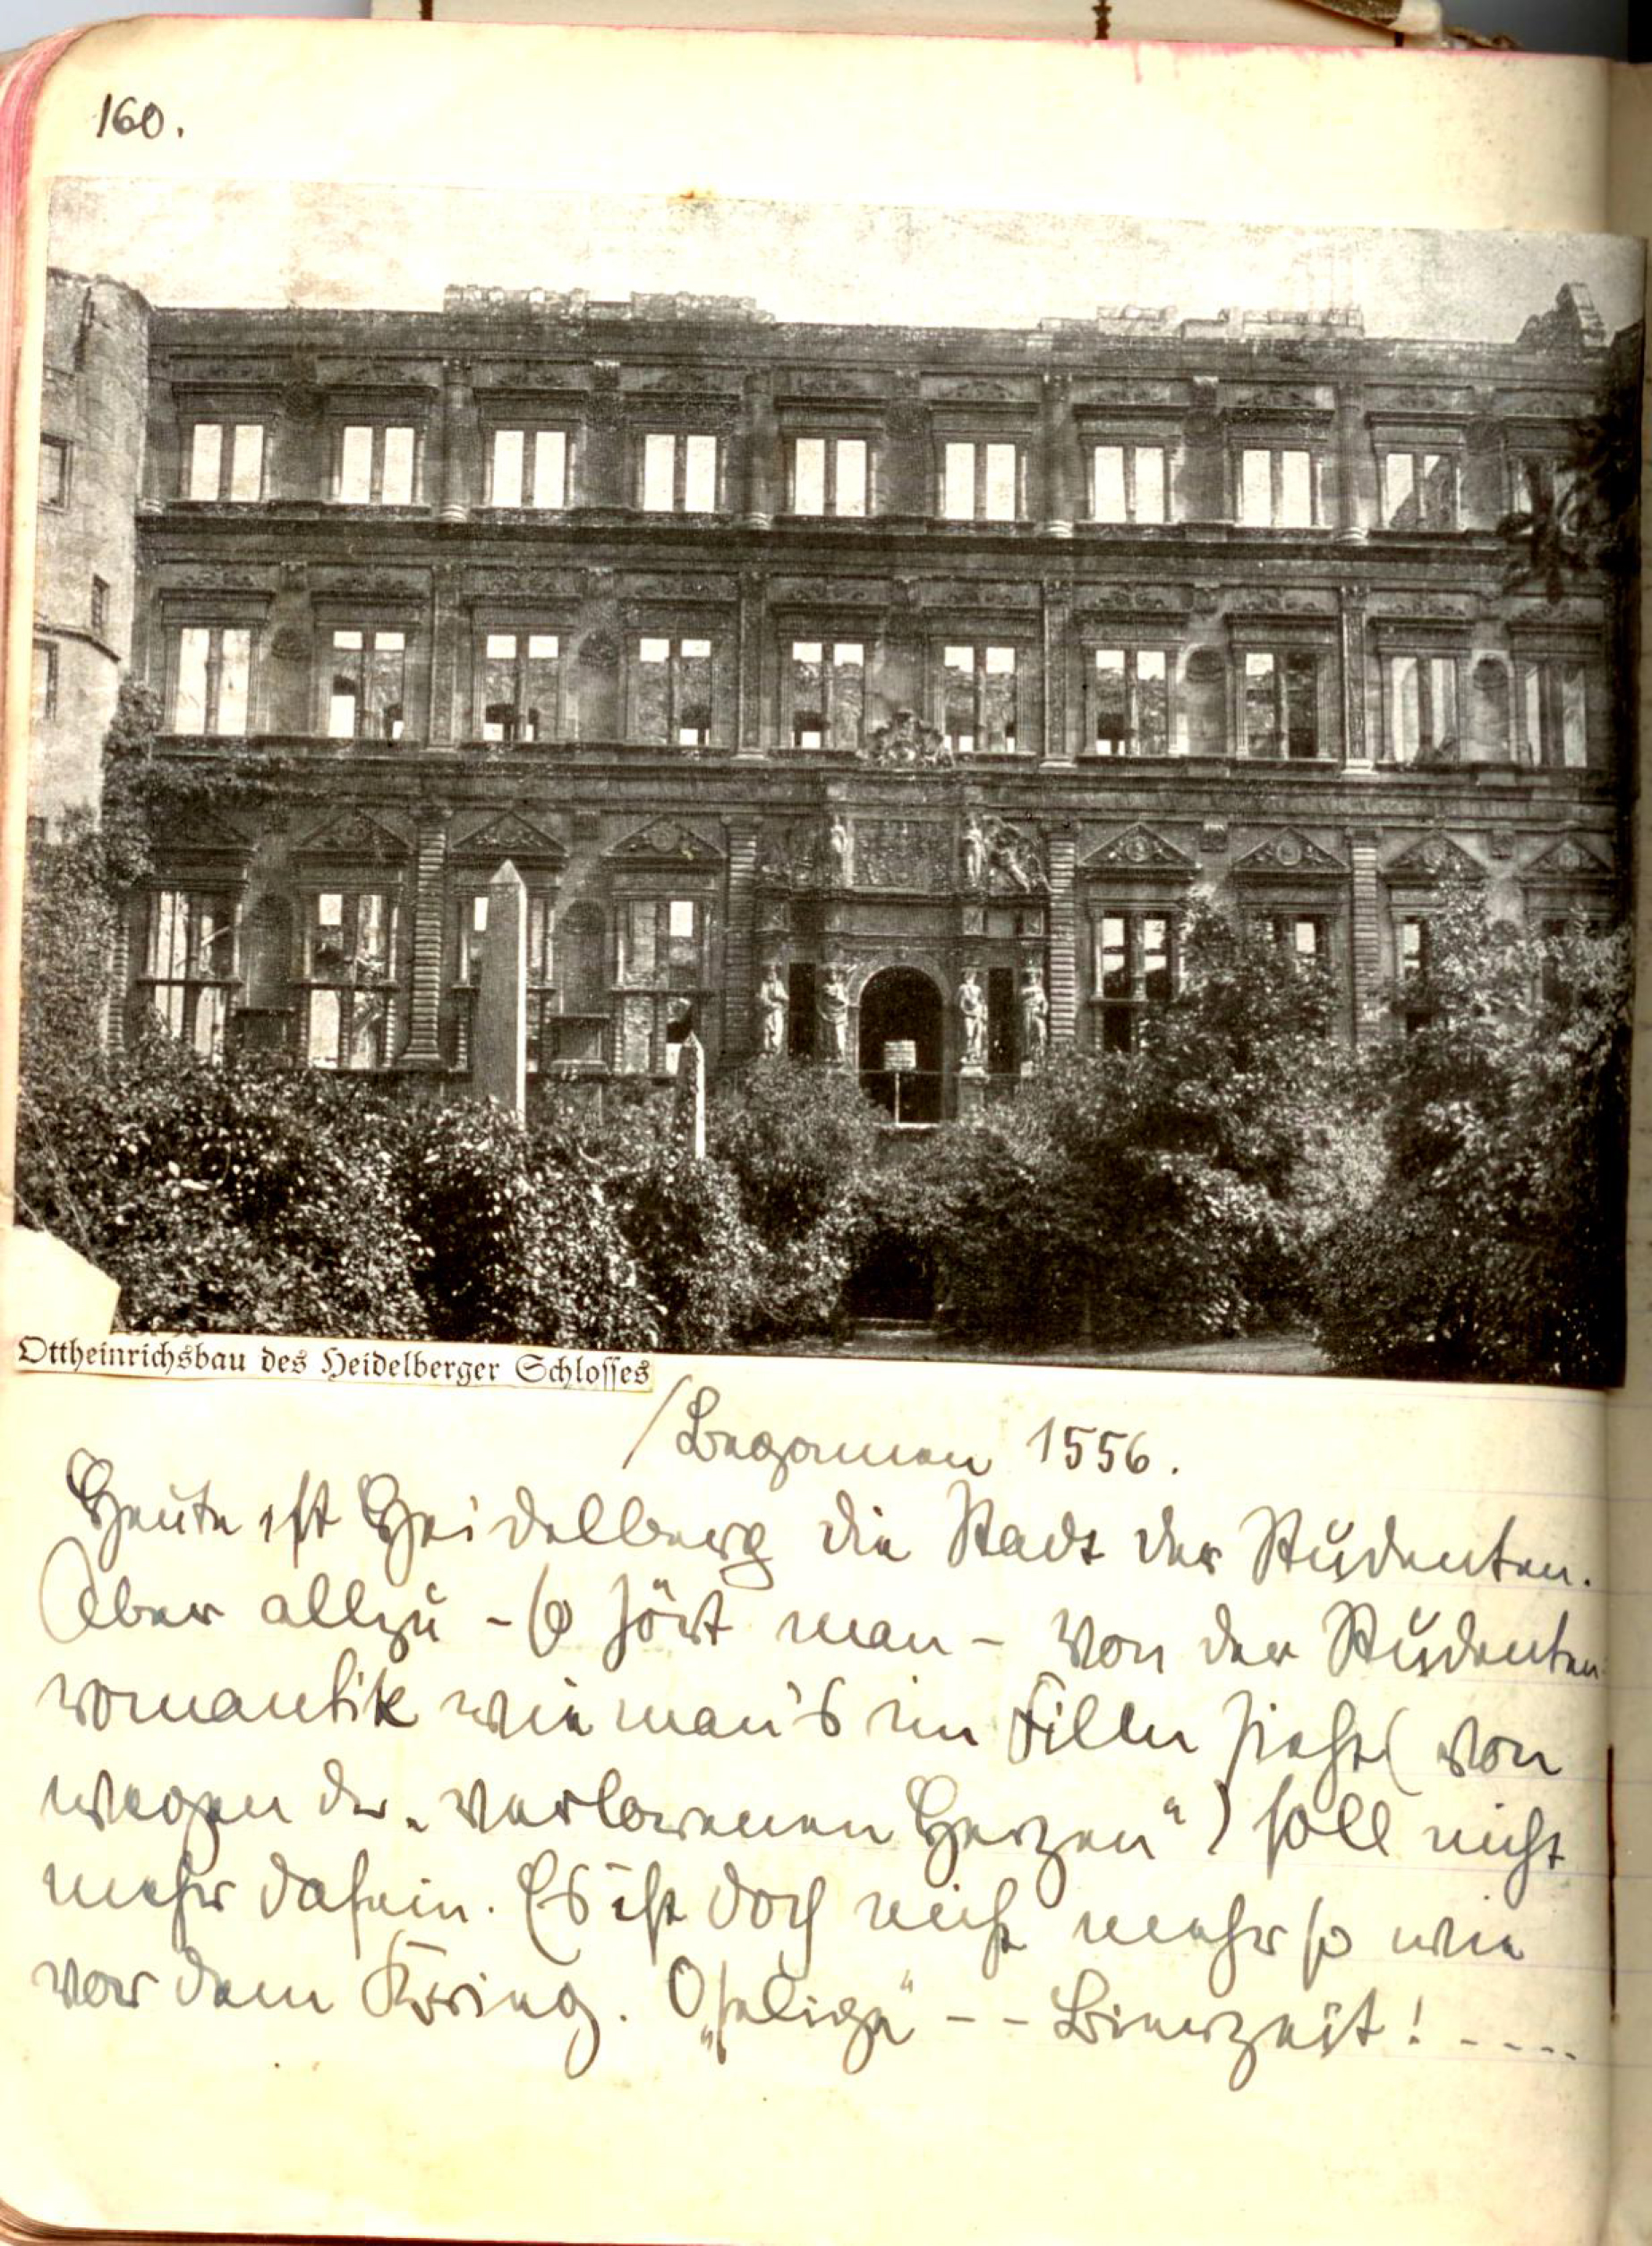 160.
Ottheinrichsbau des Heidelberger Schlosses
/Begonnen 1556.
Heute ist Heidelberg die Stadt der Studenten.
Aber allzu - so hört man - von der Studenten
romantik wie man's im Film sieht (von
wegen der „verlorenen Herzen") soll nicht
mehr dasein. Es ist doch nicht mehr so wie
vor dem Krieg. O „selige" - - Bierzeit! - - - -